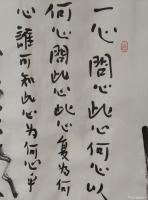 一心問此心此心何心以
何心問此心此心复為何
心誰可知此心為何心乎